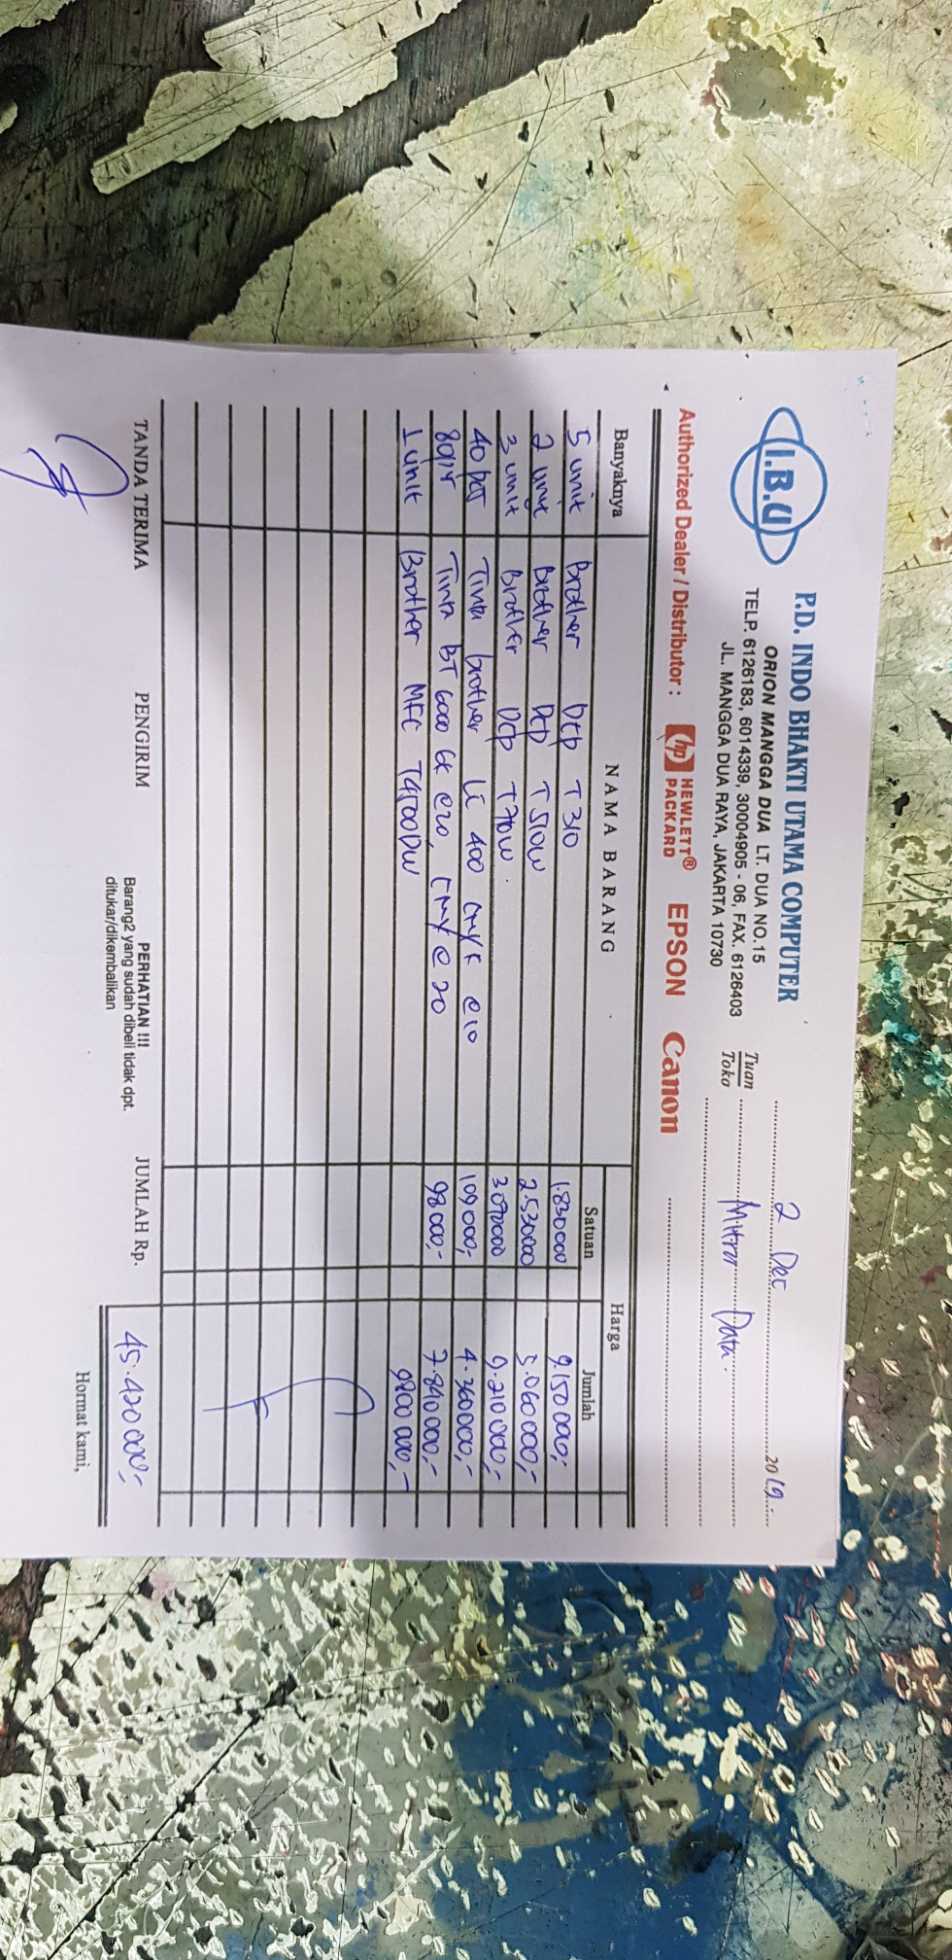 I.B.U
P.D. INDO BHAKTI UTAMA COMPUTER
ORION MANGGA DUA LT. DUA NO.15
TELP. 6126183, 6014339, 30004905 - 06, FAX. 6126403
JL. MANGGA DUA RAYA, JAKARTA 10730
2 Dec 2019
Tuan
Toko Mitra Data.
Authorized Dealer / Distributor : hp HEWLETT® PACKARD EPSON Canon
Banyaknya NAMA BARANG Harga
Satuan Jumlah
5 unit Brother DCP T310 1.830000 9.150000,-
2 unit Brother DCP T510W 2.530000 5.060000,-
3 unit Brother DCP T710W. 3070000 9.210000,-
40 pcs Tinta brother LC 400 CMYK @10 109000,- 4.360000,-
80 Tinta BT 6000 BK @20, CMY @20 98000,- 7.840000,-
1 unit Brother MFC T4500DW 9800000,-
TANDA TERIMA PENGIRIM
PERHATIAN !!!
Barang2 yang sudah dibeli tidak dpt.
ditukar/dikembalikan
JUMLAH Rp. 45.420000,-
Hormat kami,